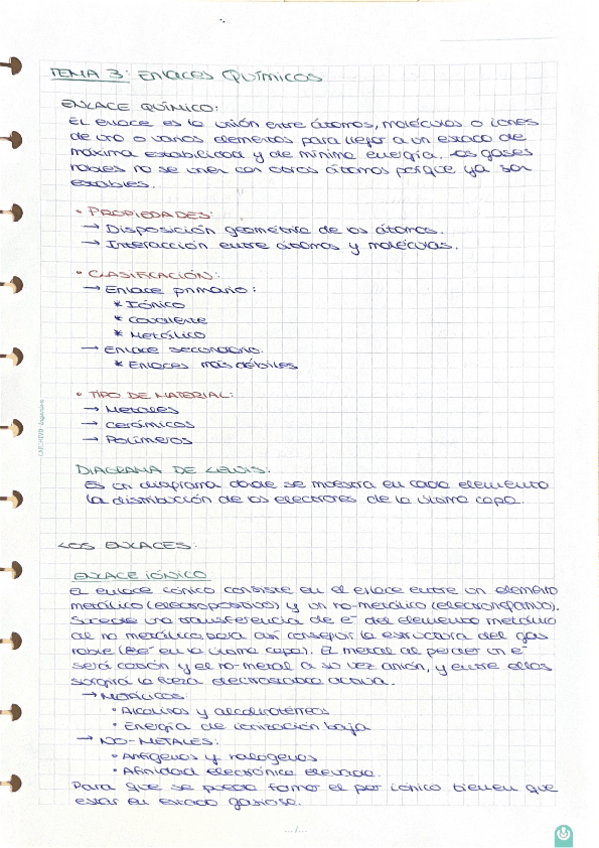 TEMA 3: ENlaces QUÍMICOS
ENLACE QUÍMICO:
EL enlace es la unión entre átomos, moléculas o iones
de uno o varios elementos para llegar a un estado de
máxima estabilidad y de mínima energía. Los gases
nobles no se unen con otros átomos porque ya son
estables.
• PROPIEDADES:
→ Disposición geométrica de los átomos.
→ Interacción entre átomos y moléculas.
• CLASIFICACIÓN:
→ Enlace primario:
* Iónico
* Covalente
* Metálico
→ Enlace secundario.
* Enlaces más débiles
• TIPO DE MATERIAL:
→ Metales
→ Cerámicos
→ Polímeros
DIAGRAMA DE LEWIS:
Es un diagrama donde se muestra en cada elemento
la distribución de los electrones de la última capa.
LOS ENLACES:
ENLACE IÓNICO
El enlace iónico consiste en el enlace entre un elemento
metálico (electropositivo) y un no-metálico (electronegativo).
Sucede una transferencia de e⁻ del elemento metálico
al no metálico, para así conseguir la estructura del gas
noble (8e⁻ en la última capa). El metal al perder un e⁻
será catión y el no-metal a su vez anión, y entre ellos
surgirá la fuerza electrostática
→ METÁLICOS
• Alcalinos y alcalinotérreos
• Energía de ionización baja
→ NO-METALES:
• Anfígenos y halógenos
• Afinidad electrónica elevada.
Para que se pueda formar el par iónico tienen que
estar en estado gaseoso.
.../...